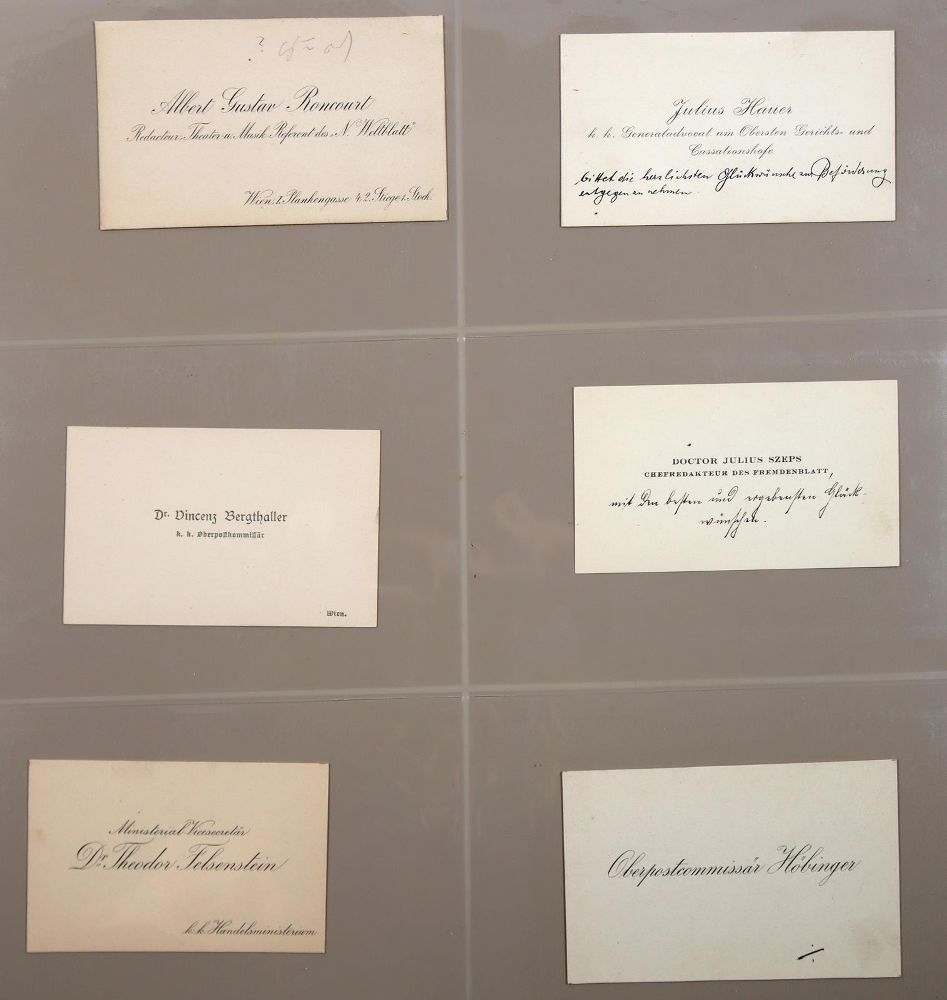 Albert Gustav Roncourt
Redacteur, Theater u. Musik Referent des „N. Weltblatt"
Wien, I. Plankengasse 4, 2. Stiege 1. Stock.
Julius Hauer
k. k. Generaladvocat am Obersten Gerichts- und
Cassationshofe
bittet die herzlichsten Glückwünsche zur Beförderung
entgegen zu nehmen.
Dr. Vincenz Bergthaller
k. k. Oberpostkommissär
Wien.
DOCTOR JULIUS SZEPS
CHEFREDAKTEUR DES FREMDENBLATT,
mit den besten und ergebensten Glück-
wünschen.
Ministerial-Vicesecretär
Dr. Theodor Felsenstein
k. k. Handelsministerium
Oberpostcommissär Höbinger